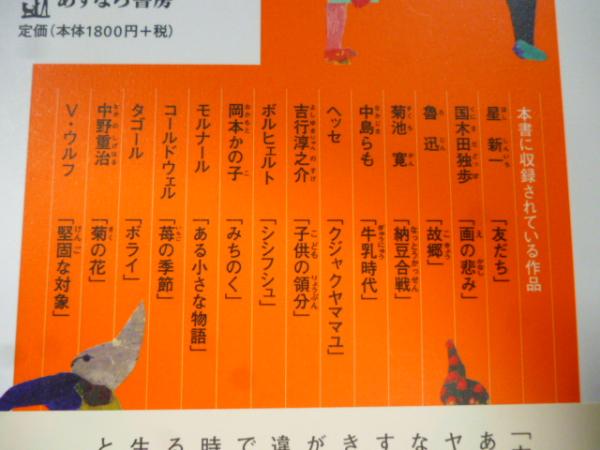 あすなろ書房
定価(本体1800円+税)
本書に収録されている作品
星 新一 「友だち」
国木田独歩 「画の悲み」
魯 迅 「故郷」
菊池 寛 「納豆合戦」
中島らも 「牛乳時代」
ヘッセ 「クジャクヤママユ」
吉行淳之介 「子供の領分」
ボルヒェルト 「シシフシュ」
岡本かの子 「みちのく」
モルナール 「ある小さな物語」
コールドウェル 「苺の季節」
タゴール 「ボライ」
中野重治 「菊の花」
V・ウルフ 「堅固な対象」